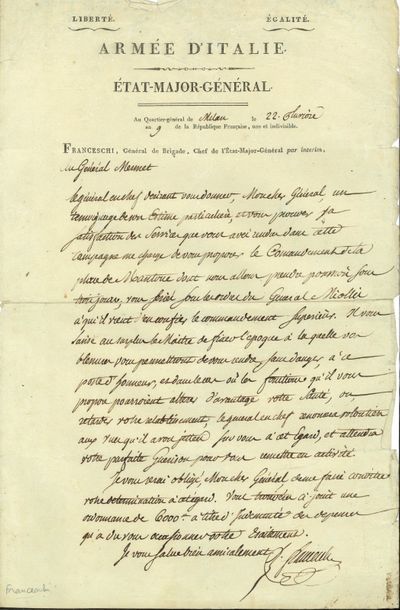 LIBERTÉ. ÉGALITÉ.
ARMÉE D'ITALIE.
ÉTAT-MAJOR-GÉNÉRAL.
Au Quartier-général de Milan le 22 Pluviose
an 9 de la République Française, une et indivisible.
FRANCESCHI, Général de Brigade, Chef de l'État-Major-Général par interim,
au Général Mermet
Le général en chef désirant vous donner, Mon cher Général un
témoignage de son Estime particulière, et vous prouver sa
satisfaction des Services que vous avez rendu dans cette
Campagne me charge de vous proposer le Commandement de la
place de Mantoue dont nous allons prendre possession sous
jours, vous sous les ordres du General Miollis
à qui il vient d'en confier le commandement Superieur. Il vous
laisse au surplus le Maitre de fixer l'epoque à laquelle vos
blessures vous permettront de vous rendre sans danger, à ce
poste d'honneur, et dans le cas où les fonctions qu'il vous
propose pourroient altérer d'avantage votre Santé, ou
retarder votre retablissement, le general en chef
aux vues qu'il avoit sur vous à cet Egard, et attendra
votre parfaite Guerison pour vous remettre en activité.
Je vous serai obligé Mon cher Général de me faire connoitre
votre determination à cet égard. Vous trouverez ci joint une
ordonnance de 6000 à titre d'indemnité des depenses
qu'a du vous occasionner votre traitement.
Je vous salue bien amicalement
Franceschi